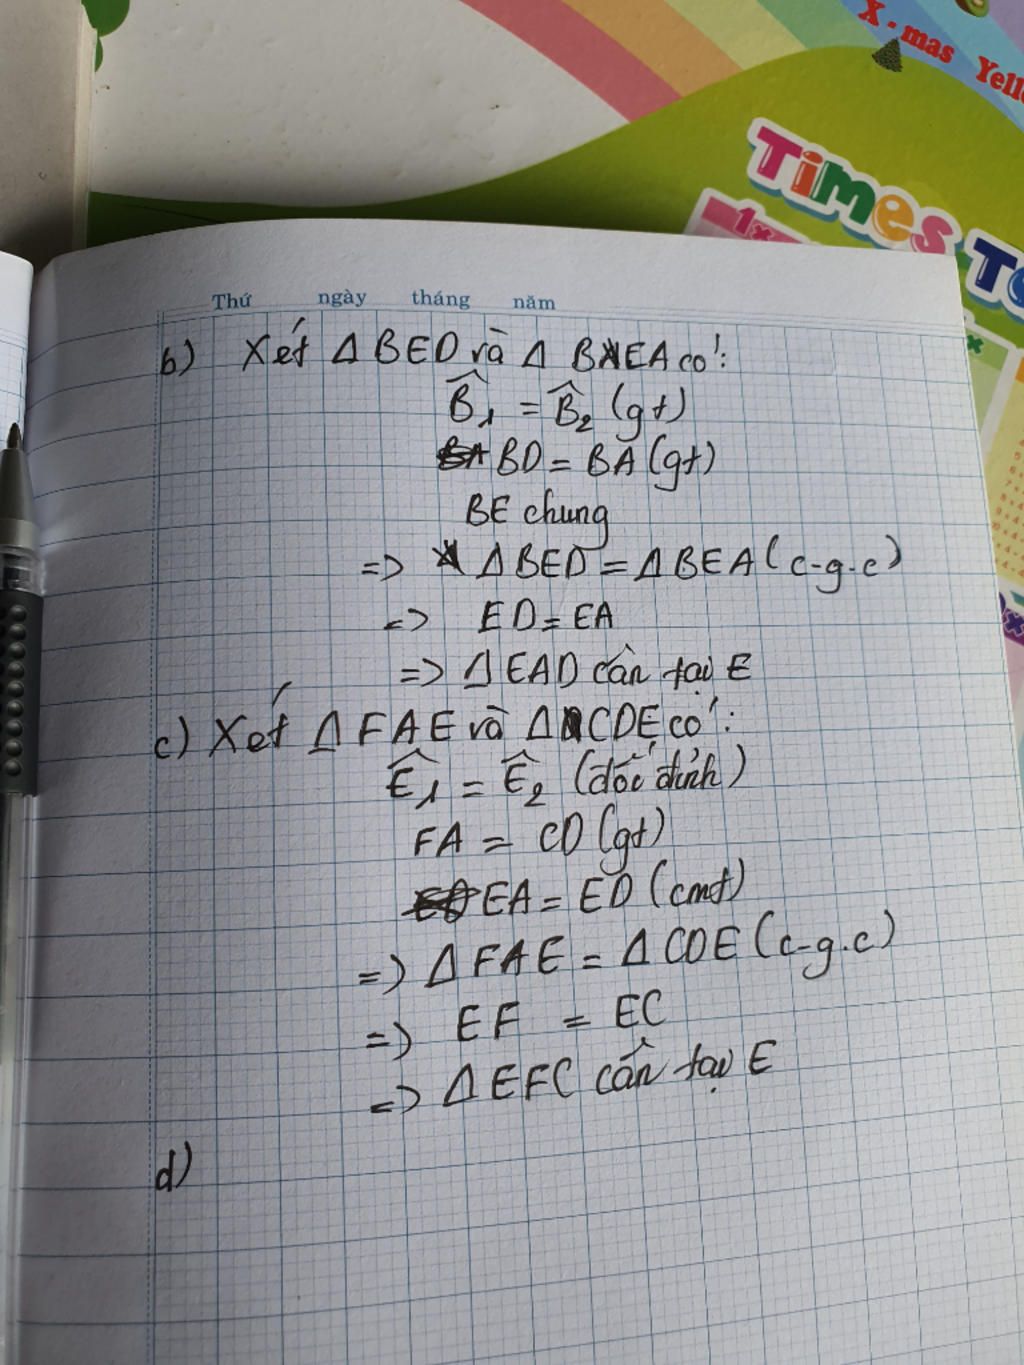 X-mas Yell
Times T
1x
Thứ ngày tháng năm
b) Xét Δ BED và Δ BEA có:
B̂₁ = B̂₂ (gt)
BD = BA (gt)
BE chung
=> Δ BED = Δ BEA (c-g.c)
=> ED = EA
=> Δ EAD cân tại E
c) Xét Δ FAE và Δ CDE có:
Ê₁ = Ê₂ (đối đỉnh)
FA = CD (gt)
EA = ED (cmt)
=> Δ FAE = Δ CDE (c-g.c)
=> EF = EC
=> Δ EFC cân tại E
d)